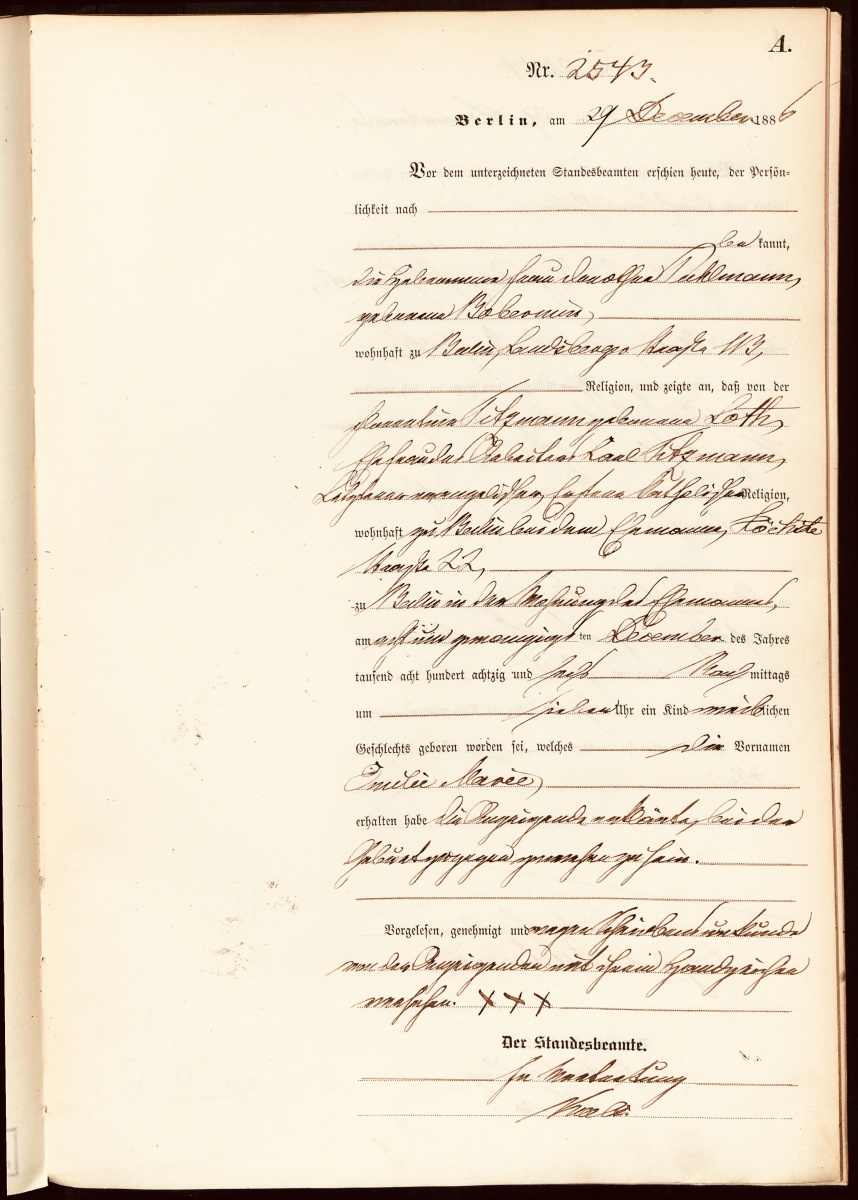 A.
Nr. 2543.
Berlin, am 29 December 1886
Vor dem unterzeichneten Standesbeamten erschien heute, der Persön-
lichkeit nach
be kannt,
die Hebamme Frau Dorothea
geborene
wohnhaft zu Berlin, Landsberger Straße 113,
Religion, und zeigte an, daß von der
Titzmann geborene Loth,
Ehefrau des Arbeiters Carl Titzmann,
Letzterer evangelischer, Erstere katholischer Religion,
wohnhaft zu Berlin bei dem Ehemanne,
Straße 22,
zu Berlin in der Wohnung des Ehemannes,
am acht und zwanzigsten December des Jahres
tausend acht hundert achtzig und sechs Nach mittags
um sieben Uhr ein Kind weiblichen
Geschlechts geboren worden sei, welches die Vornamen
Emilie Marie
erhalten habe. Die Anzeigende erklärte, bei der
Geburt zugegen gewesen zu sein.
Vorgelesen, genehmigt und wegen Schreibensunkunde
von der Anzeigenden mit ihrem Handzeichen
versehen. XXX
Der Standesbeamte.
In Vertretung